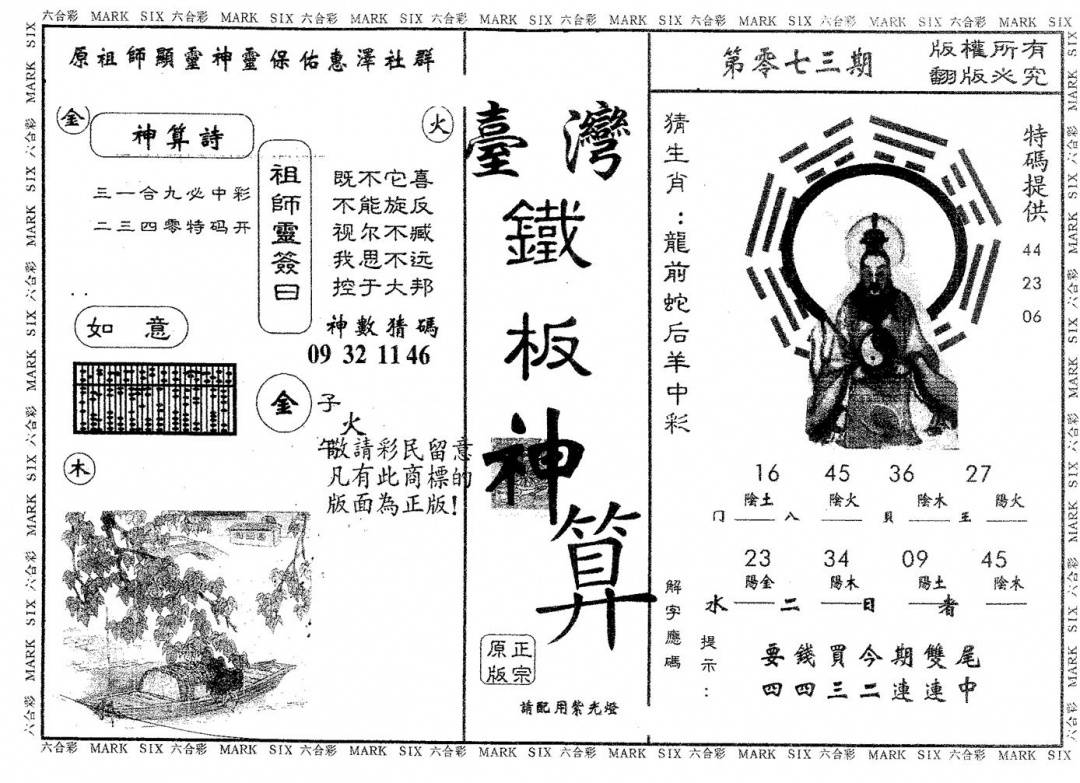 六合彩 MARK SIX 六合彩 MARK SIX 六合彩 MARK SIX 六合彩 MARK SIX 六合彩 MARK SIX 六合彩 MARK SIX 六合彩 MARK SIX 六合彩 MARK SIX
原祖師顯靈神靈保佑惠澤社群
金
神算詩
火
三一合九必中彩
二三四零特码开
祖師靈簽曰
既不它喜
不能旋反
视尔不臧
我思不远
控于大邦
神數猜碼
09 32 11 46
如意
金
子
火
午
敬請彩民留意
凡有此商標的
版面為正版!
木
臺灣
鐵
板
神
算
正宗
原版
請配用紫光燈
第零七三期
版權所有
翻版必究
猜生肖:龍前蛇后羊中彩
特碼提供
44
23
06
16 45 36 27
陰土 陰火 陰木 陽火
门 八 貝 王
23 34 09 45
陽金 陽木 陽土 陰水
水 二 日 者
解字應碼
提示:
要錢買今期雙尾
四四三二連連中
六合彩 MARK SIX 六合彩 MARK SIX 六合彩 MARK SIX 六合彩 MARK SIX 六合彩 MARK SIX 六合彩 MARK SIX 六合彩 MARK SIX 六合彩 MARK SIX